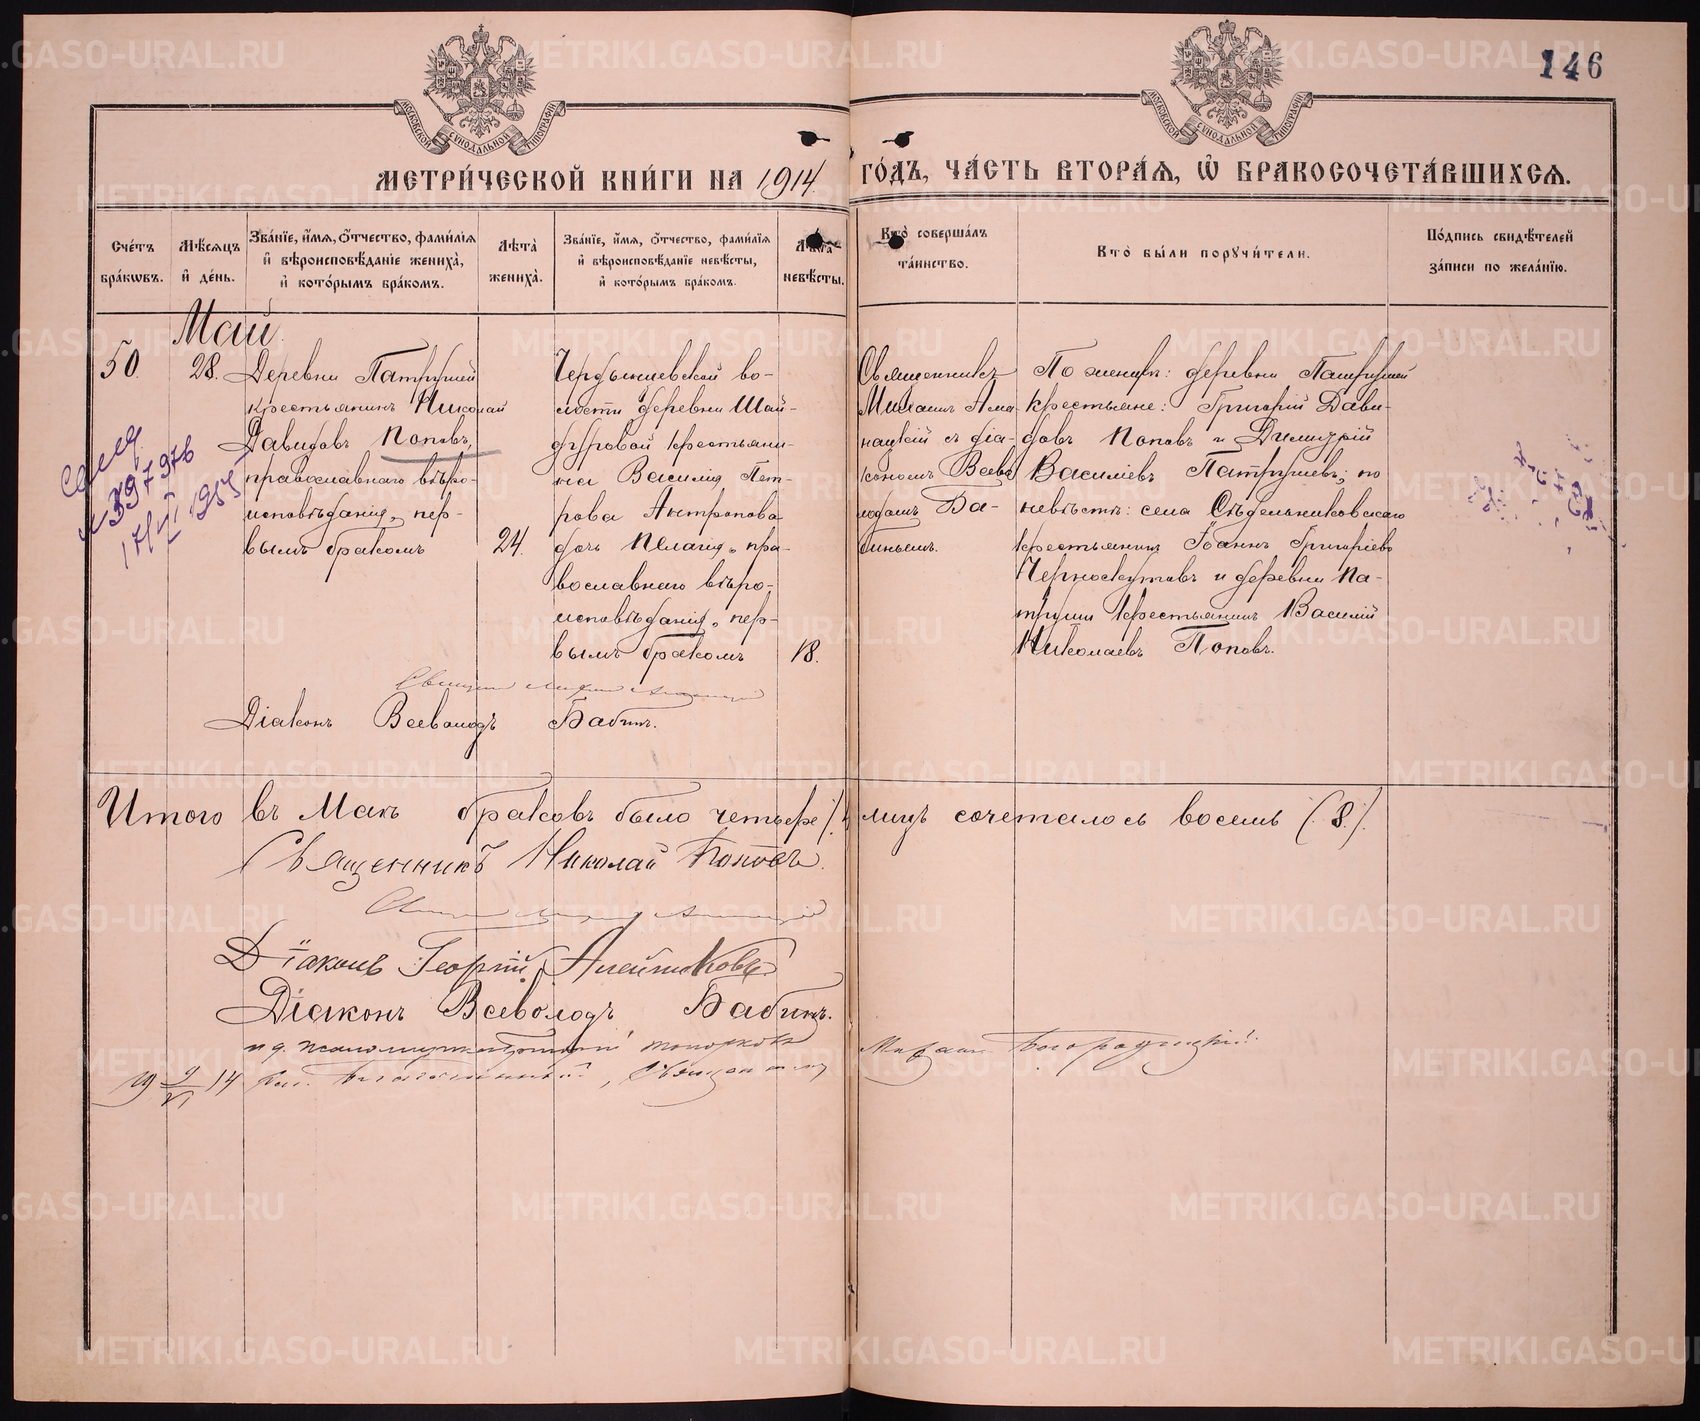 146
МЕТРИ́ЧЕСКОЙ КНИ́ГИ НА 1914 ГО́ДЪ, ЧА́СТЬ ВТОРА́Я, Ѽ БРАКОСОЧЕТА́ВШИХСЯ.
Сче́тъ бра́кωвъ.
Мѣ́сяцъ и҆ де́нь.
Зва́нїе, и҆́мя, ѻ҆́тчество, фами́лїя и҆ вѣроисповѣ́данїе жениха̀, и҆ кото́рымъ бра́комъ.
Лѣта̀ жениха̀.
Зва́нїе, и҆́мя, ѻ҆́тчество, фами́лїя и҆ вѣроисповѣ́данїе невѣ́сты, и҆ кото́рымъ бра́комъ.
невѣ́сты.
Кто̀ соверша́лъ та́инство.
Кто̀ бы́ли порꙋчи́тели.
По́дпись свидѣ́телей за́писи по жела́нїю.
Май
50.
28.
Деревни Патрушей
крестьянинъ Николай
Давидовъ Поповъ,
православнаго вѣро-
исповѣданія, пер-
вымъ бракомъ
24.
волости деревни Шай-
дуровой крестьяни-
на Василия Пет-
рова Антропова
дочь Пелагія, пра-
вославнаго вѣро-
исповѣданія, пер-
вымъ бракомъ
18.
Священникъ
Михаилъ
съ діа-
кономъ Всево
лодомъ Ба-
бинымъ.
По женихѣ: деревни Патрушей
крестьяне: Григорій Дави-
довъ Поповъ и Димитрій
Василіевъ Патрушевъ; по
невѣстѣ: села Сѣдельниковскаго
крестьянинъ Іоаннъ Григоріевъ
Черноскутовъ и деревни Па-
труши крестьянинъ Василій
Николаевъ Поповъ.
№ 397976
1955
Діаконъ Всеволодъ Бабинъ.
Итого въ Маѣ браковъ было четыре /.4 лицъ сочеталось восемь (.8.).
Священникъ Николай Поповъ.
Діаконъ Георгій
Діаконъ Всеволодъ Бабинъ.
19 9/VI 14
METRIKI.GASO-URAL.RU